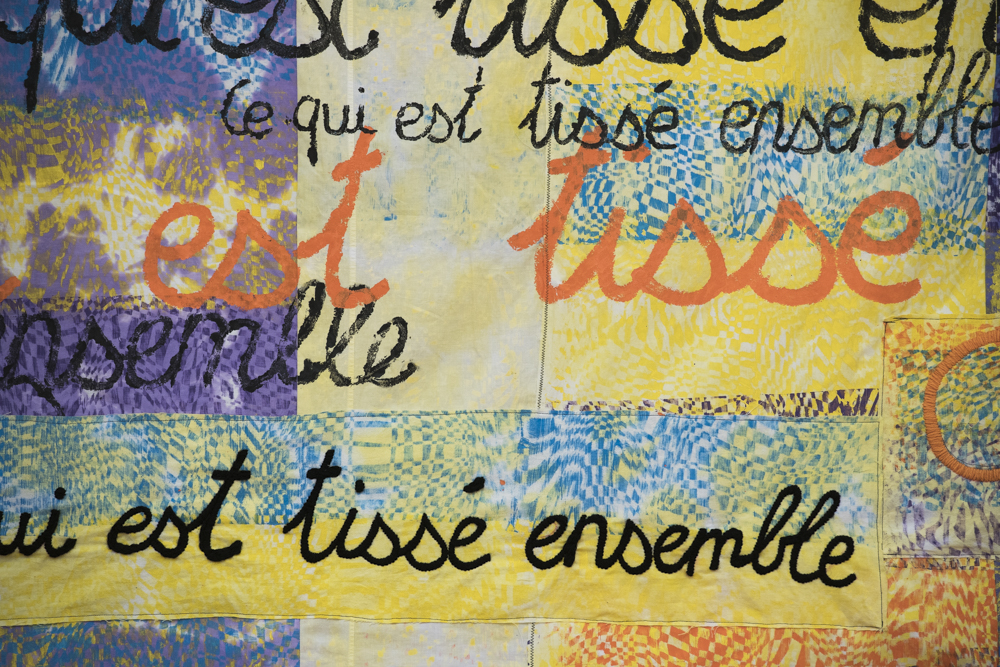 qui est tissé en
Ce qui est tissé ensemble
est tissé
ensemble
ui est tissé ensemble